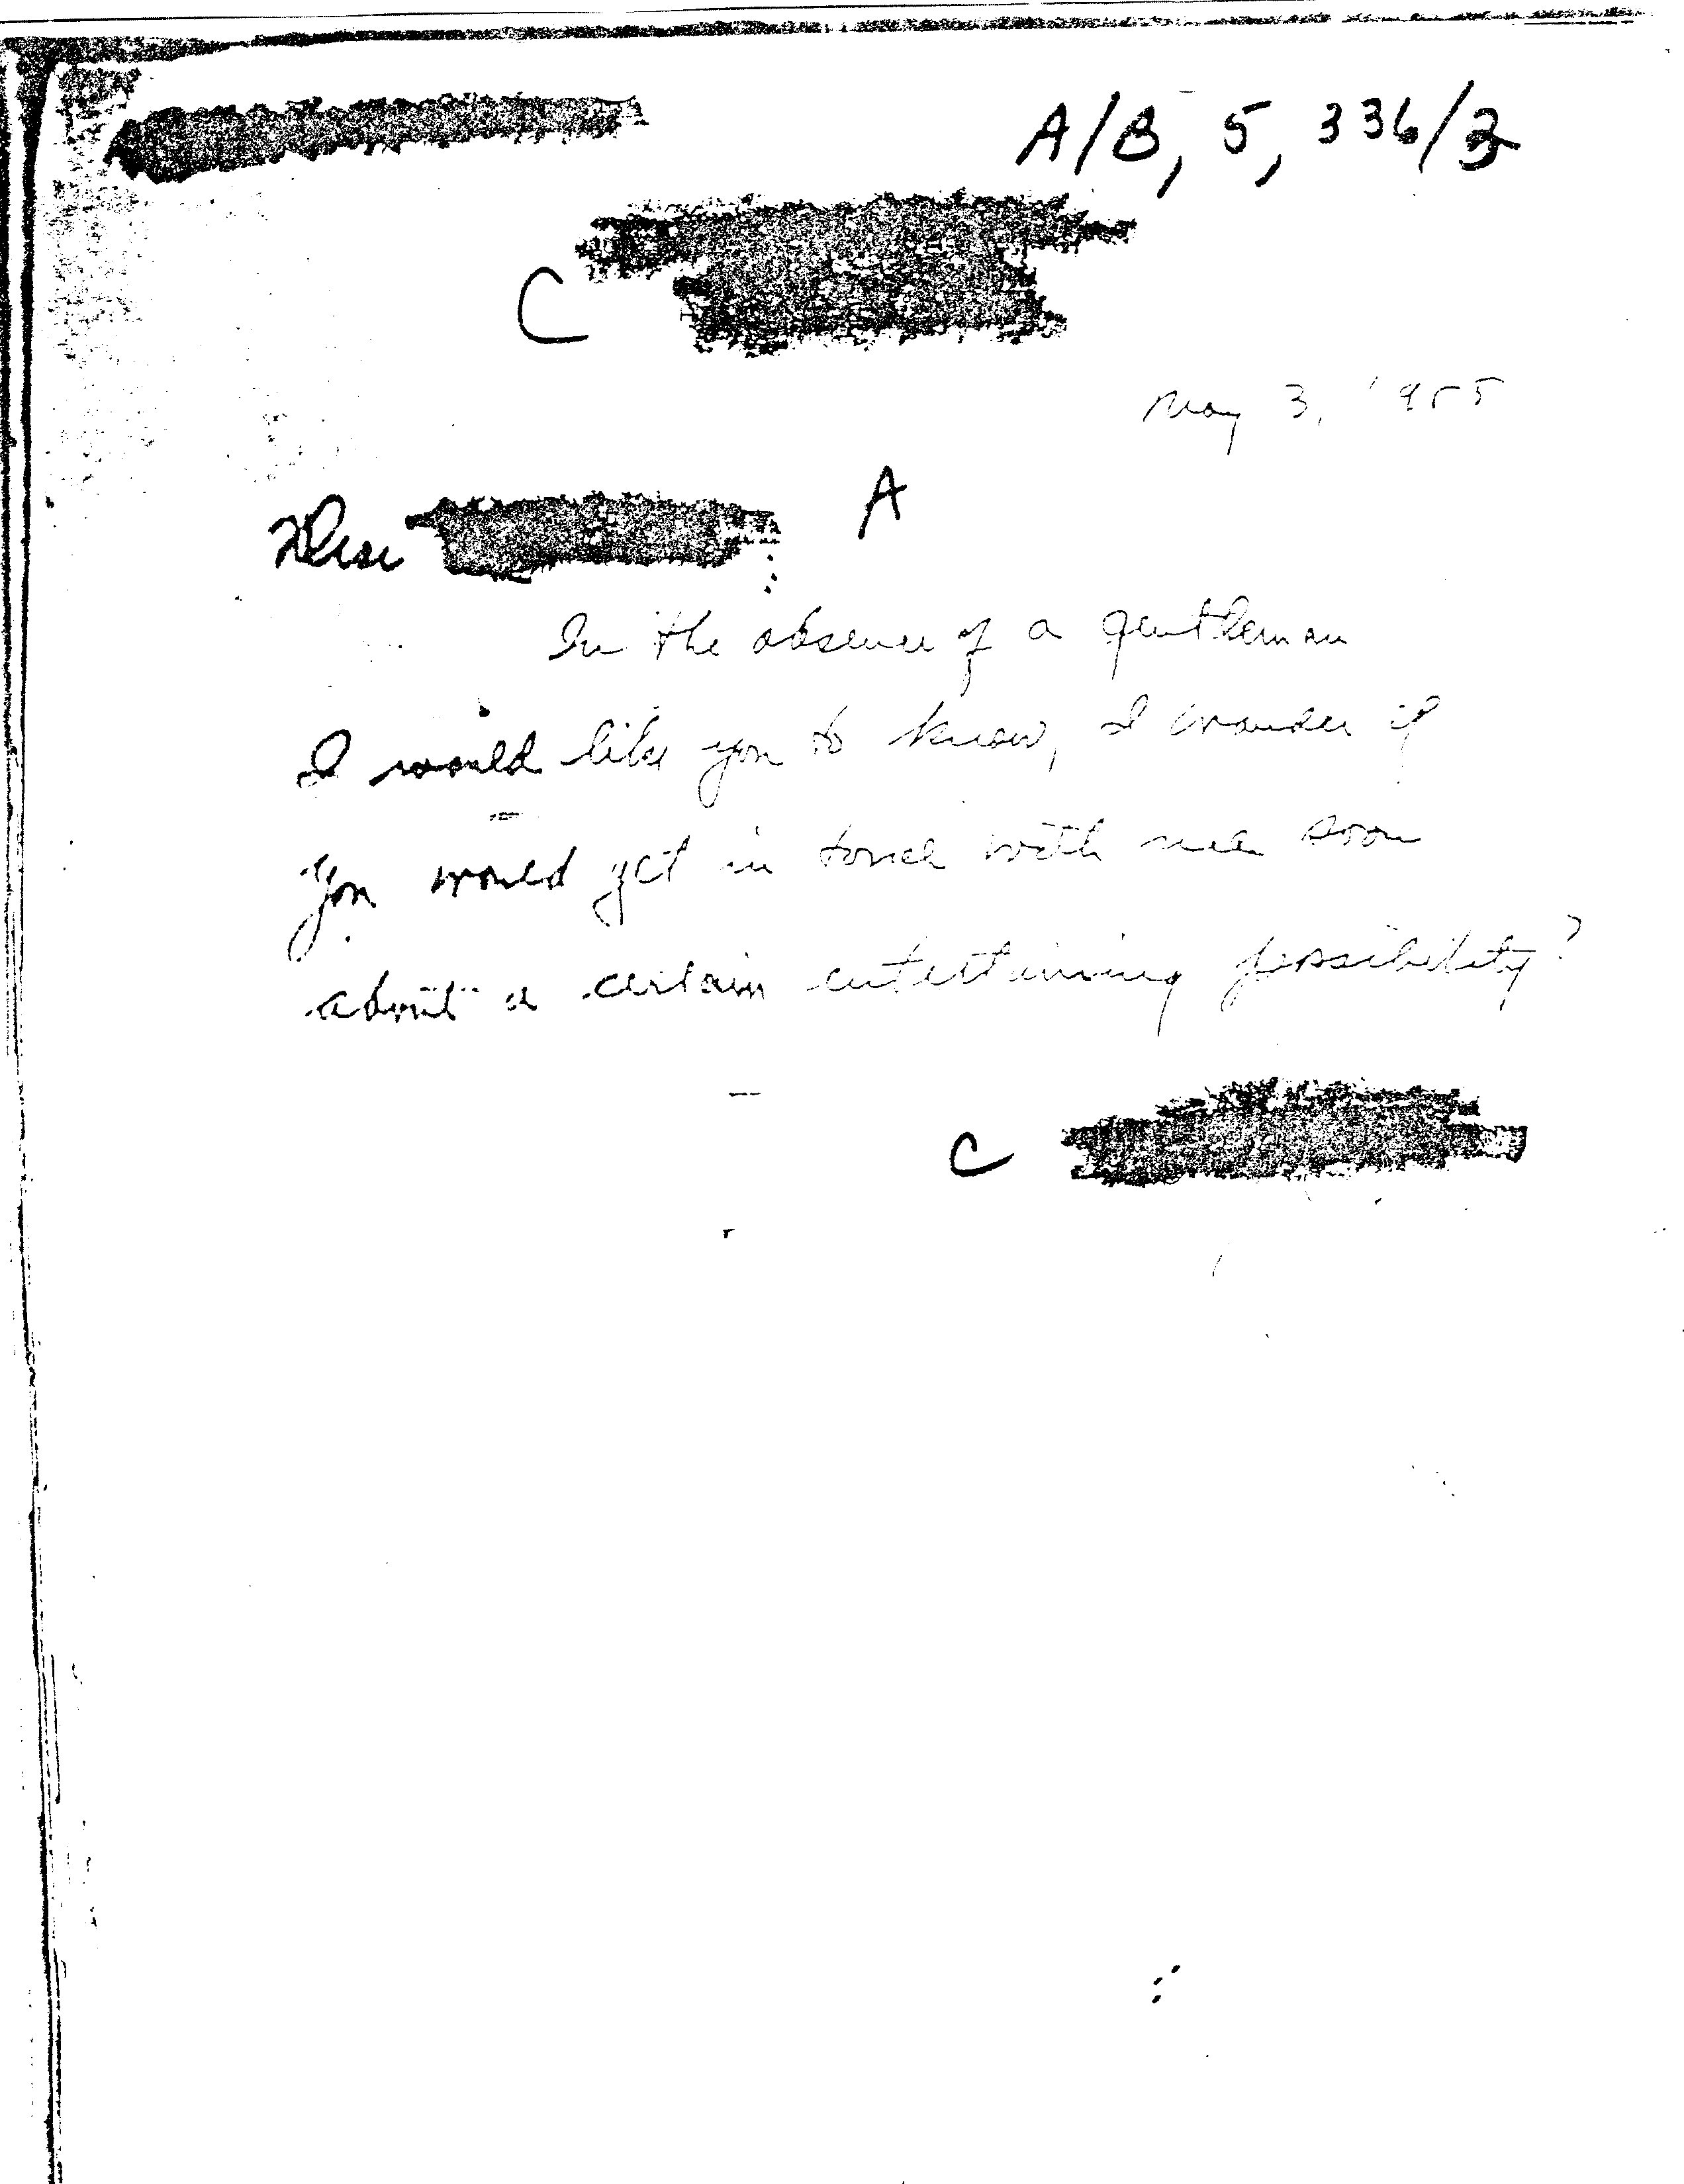 A/B, 5, 336/3
C
May 3, 1955
A
In the absence of a gentleman
I would like you to know, I wonder if
you would get in touch with me soon
about a certain entertaining possibility?
C